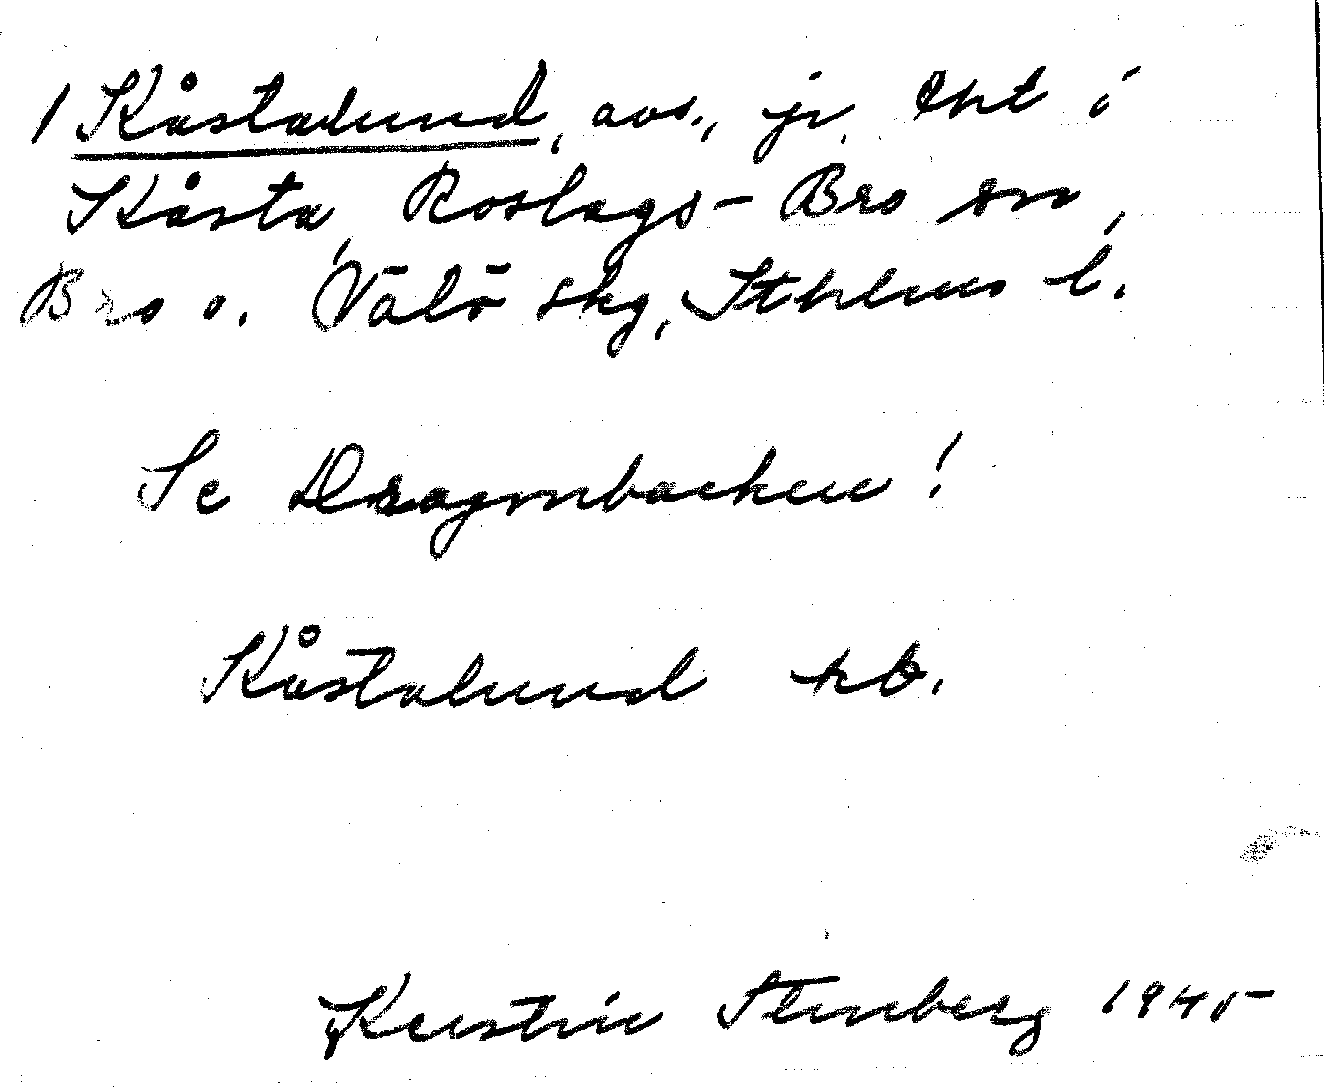 1 Kåstalund, avs., jr. tht i
Kåsta, Roslags-Bro sn,
Bro o. Vätö skg, Sthlms l.
Se Dragonbacken!
Kåstalund kb.
Kerstin Stenberg 1945